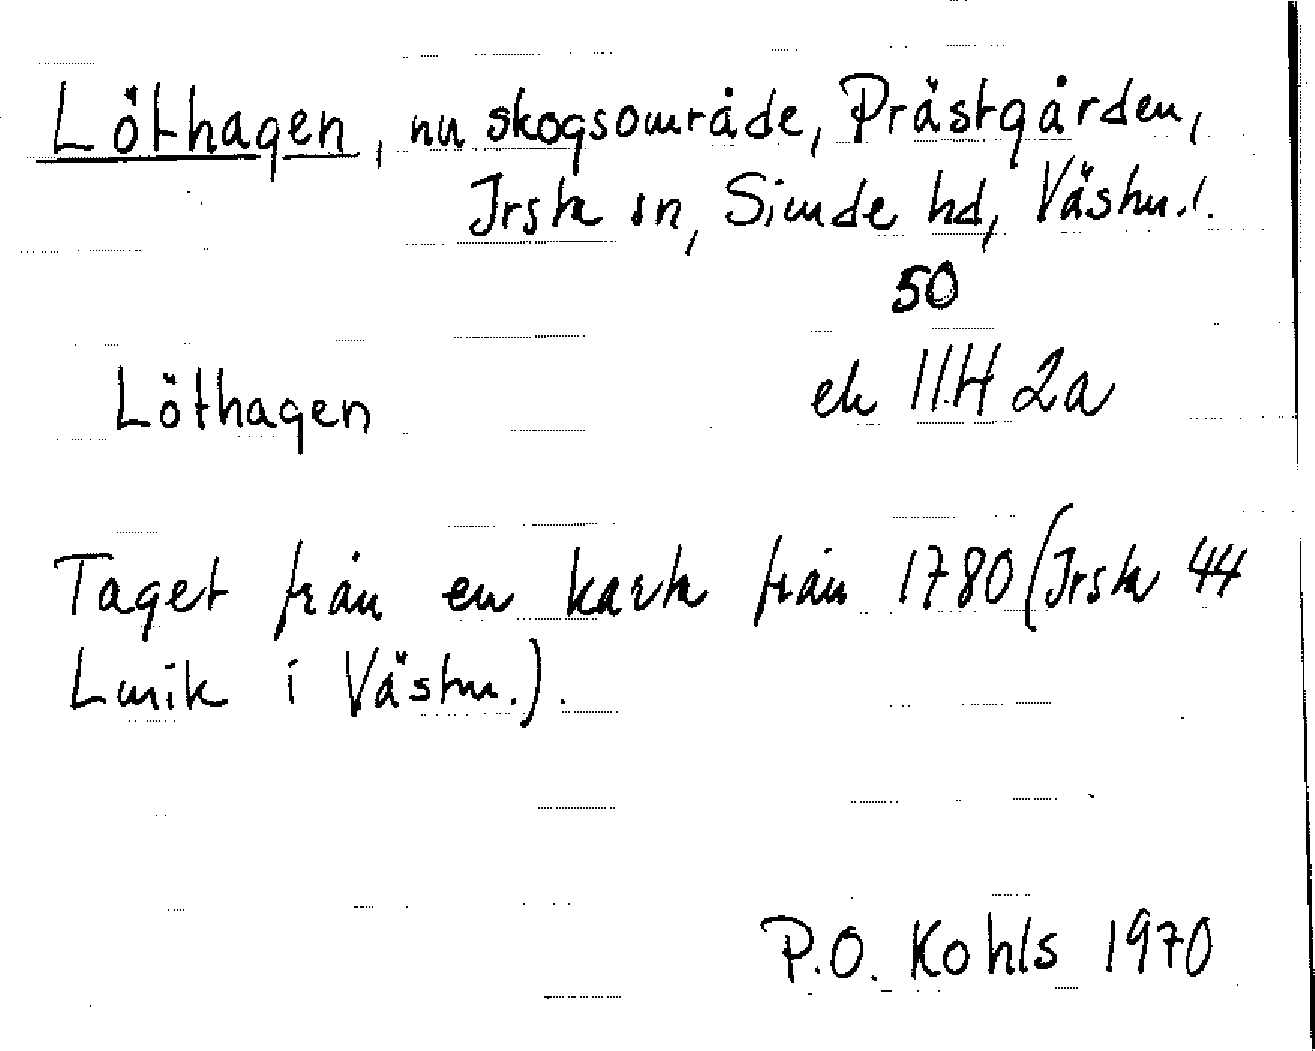 Löthagen, nu skogsområde, Prästgården,
Irsta sn, Siende hd, Västm.l.
50
Löthagen ek 11H 2a
Taget från en karta från 1780 (Irsta 44
Lmik i Västm.).
P.O. Kohls 1970